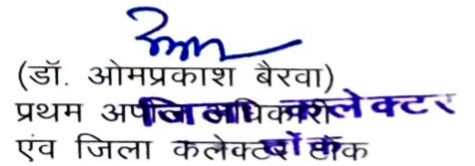 (डॉ. ओमप्रकाश बैरवा)
प्रथम अपील अधिकारी
एंव जिला कलेक्टर टोंक
जिला कलेक्टर
टोंक